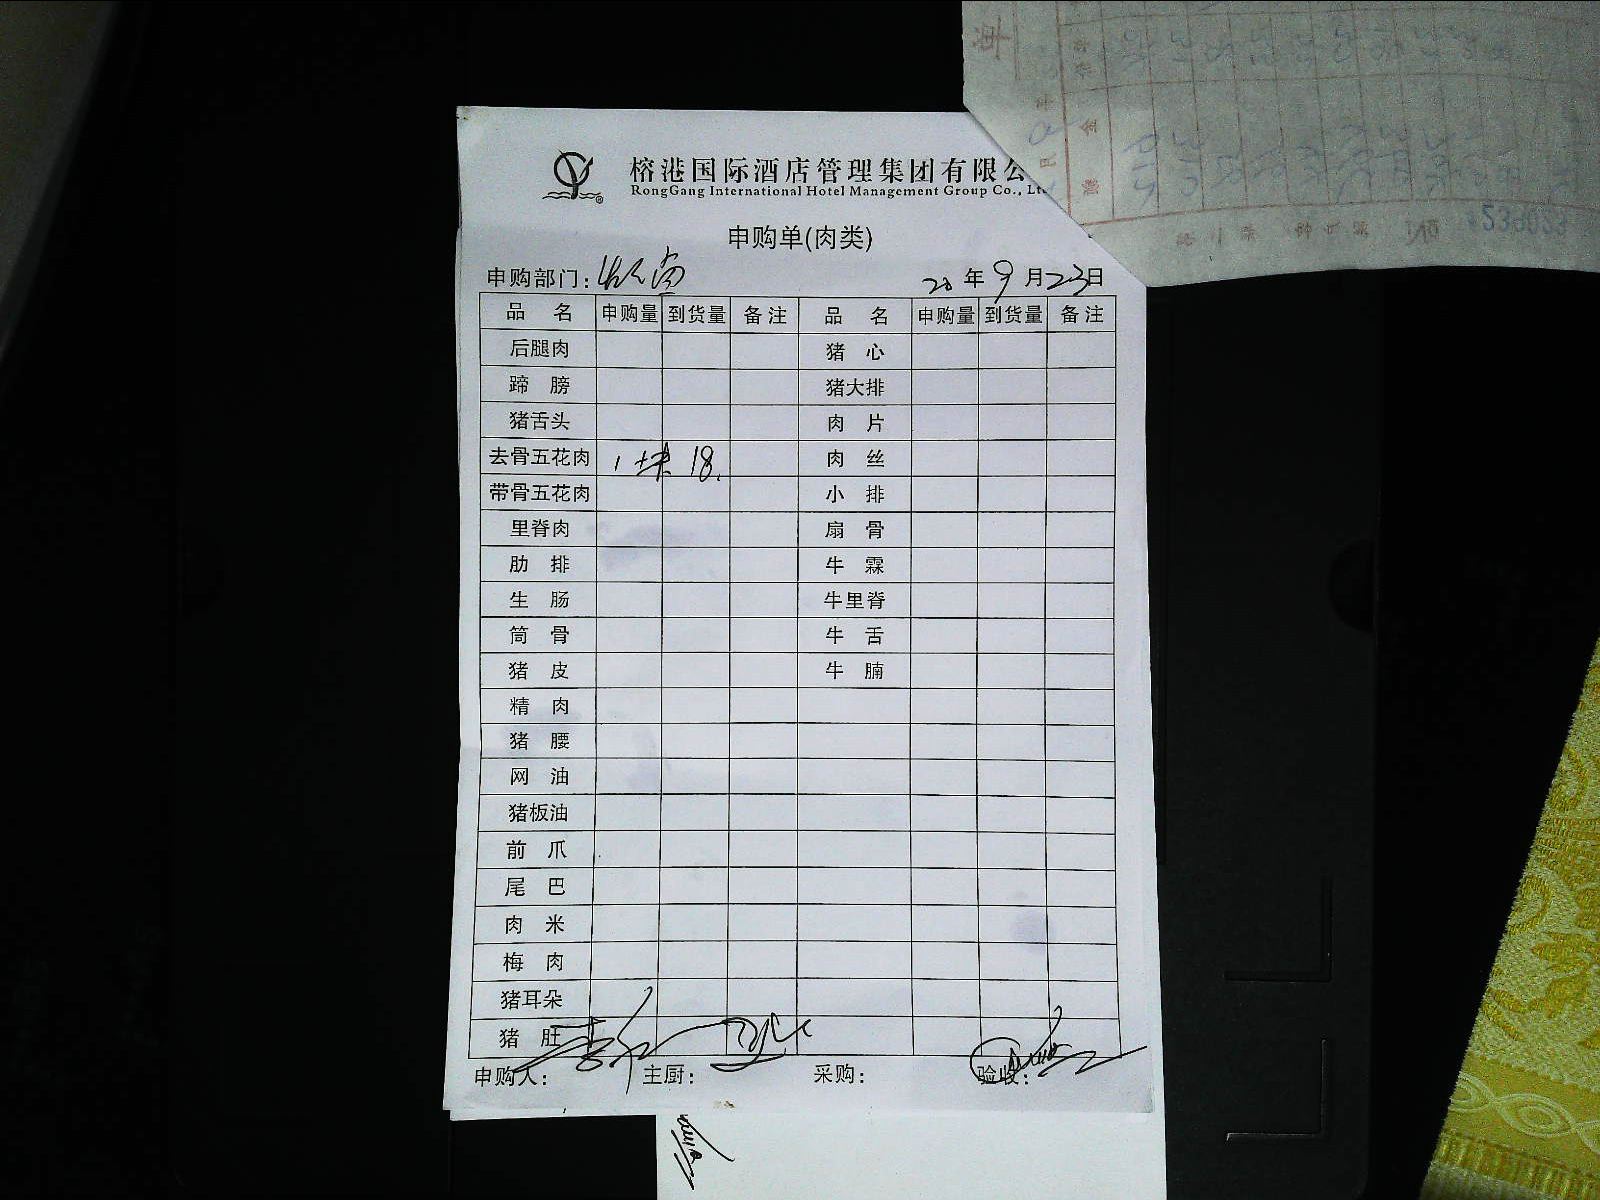 榕港国际酒店管理集团有限公
RongGang International Hotel Management Group Co., Lt
申购单(肉类)
申购部门: 20 年 9 月 23 日
品 名 申购量 到货量 备注 品 名 申购量 到货量 备注
后腿肉 猪 心
蹄 膀 猪大排
猪舌头 肉 片
去骨五花肉 1块 18. 肉 丝
带骨五花肉 小 排
里脊肉 扇 骨
肋 排 牛 霖
生 肠 牛里脊
筒 骨 牛 舌
猪 皮 牛 腩
精 肉
猪 腰
网 油
猪板油
前 爪
尾 巴
肉 米
梅 肉
猪耳朵
猪 肚
申购人: 主厨: 采购: 验收: